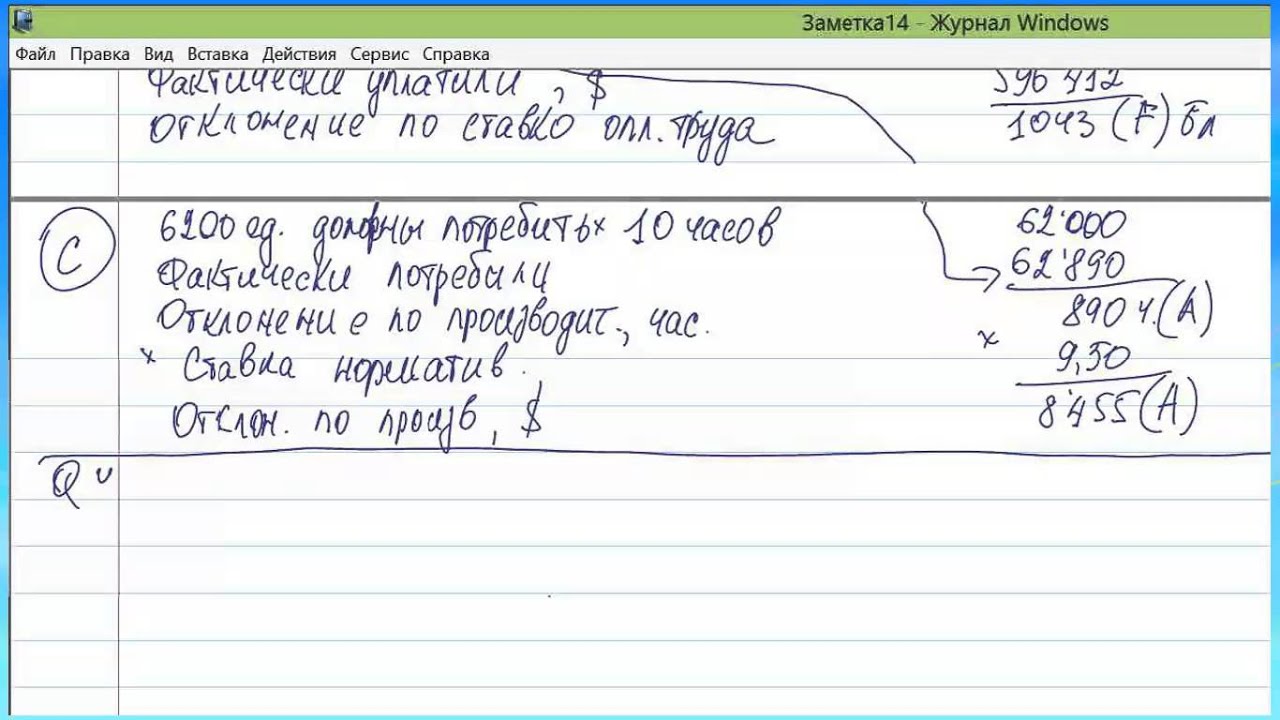 Заметка14 - Журнал Windows
Файл Правка Вид Вставка Действия Сервис Справка
Фактически уплатили, $ 596 412
Отклонение по ставко опл. труда 1043 (F) Бл
C 6200 ед. должны потребить х 10 часов 62'000
Фактически потребили 62'890
Отклонение по производит., час. 890 ч.(A)
х Ставка норматив. х 9,50
Отклон. по произв, $ 8'455 (A)
Q